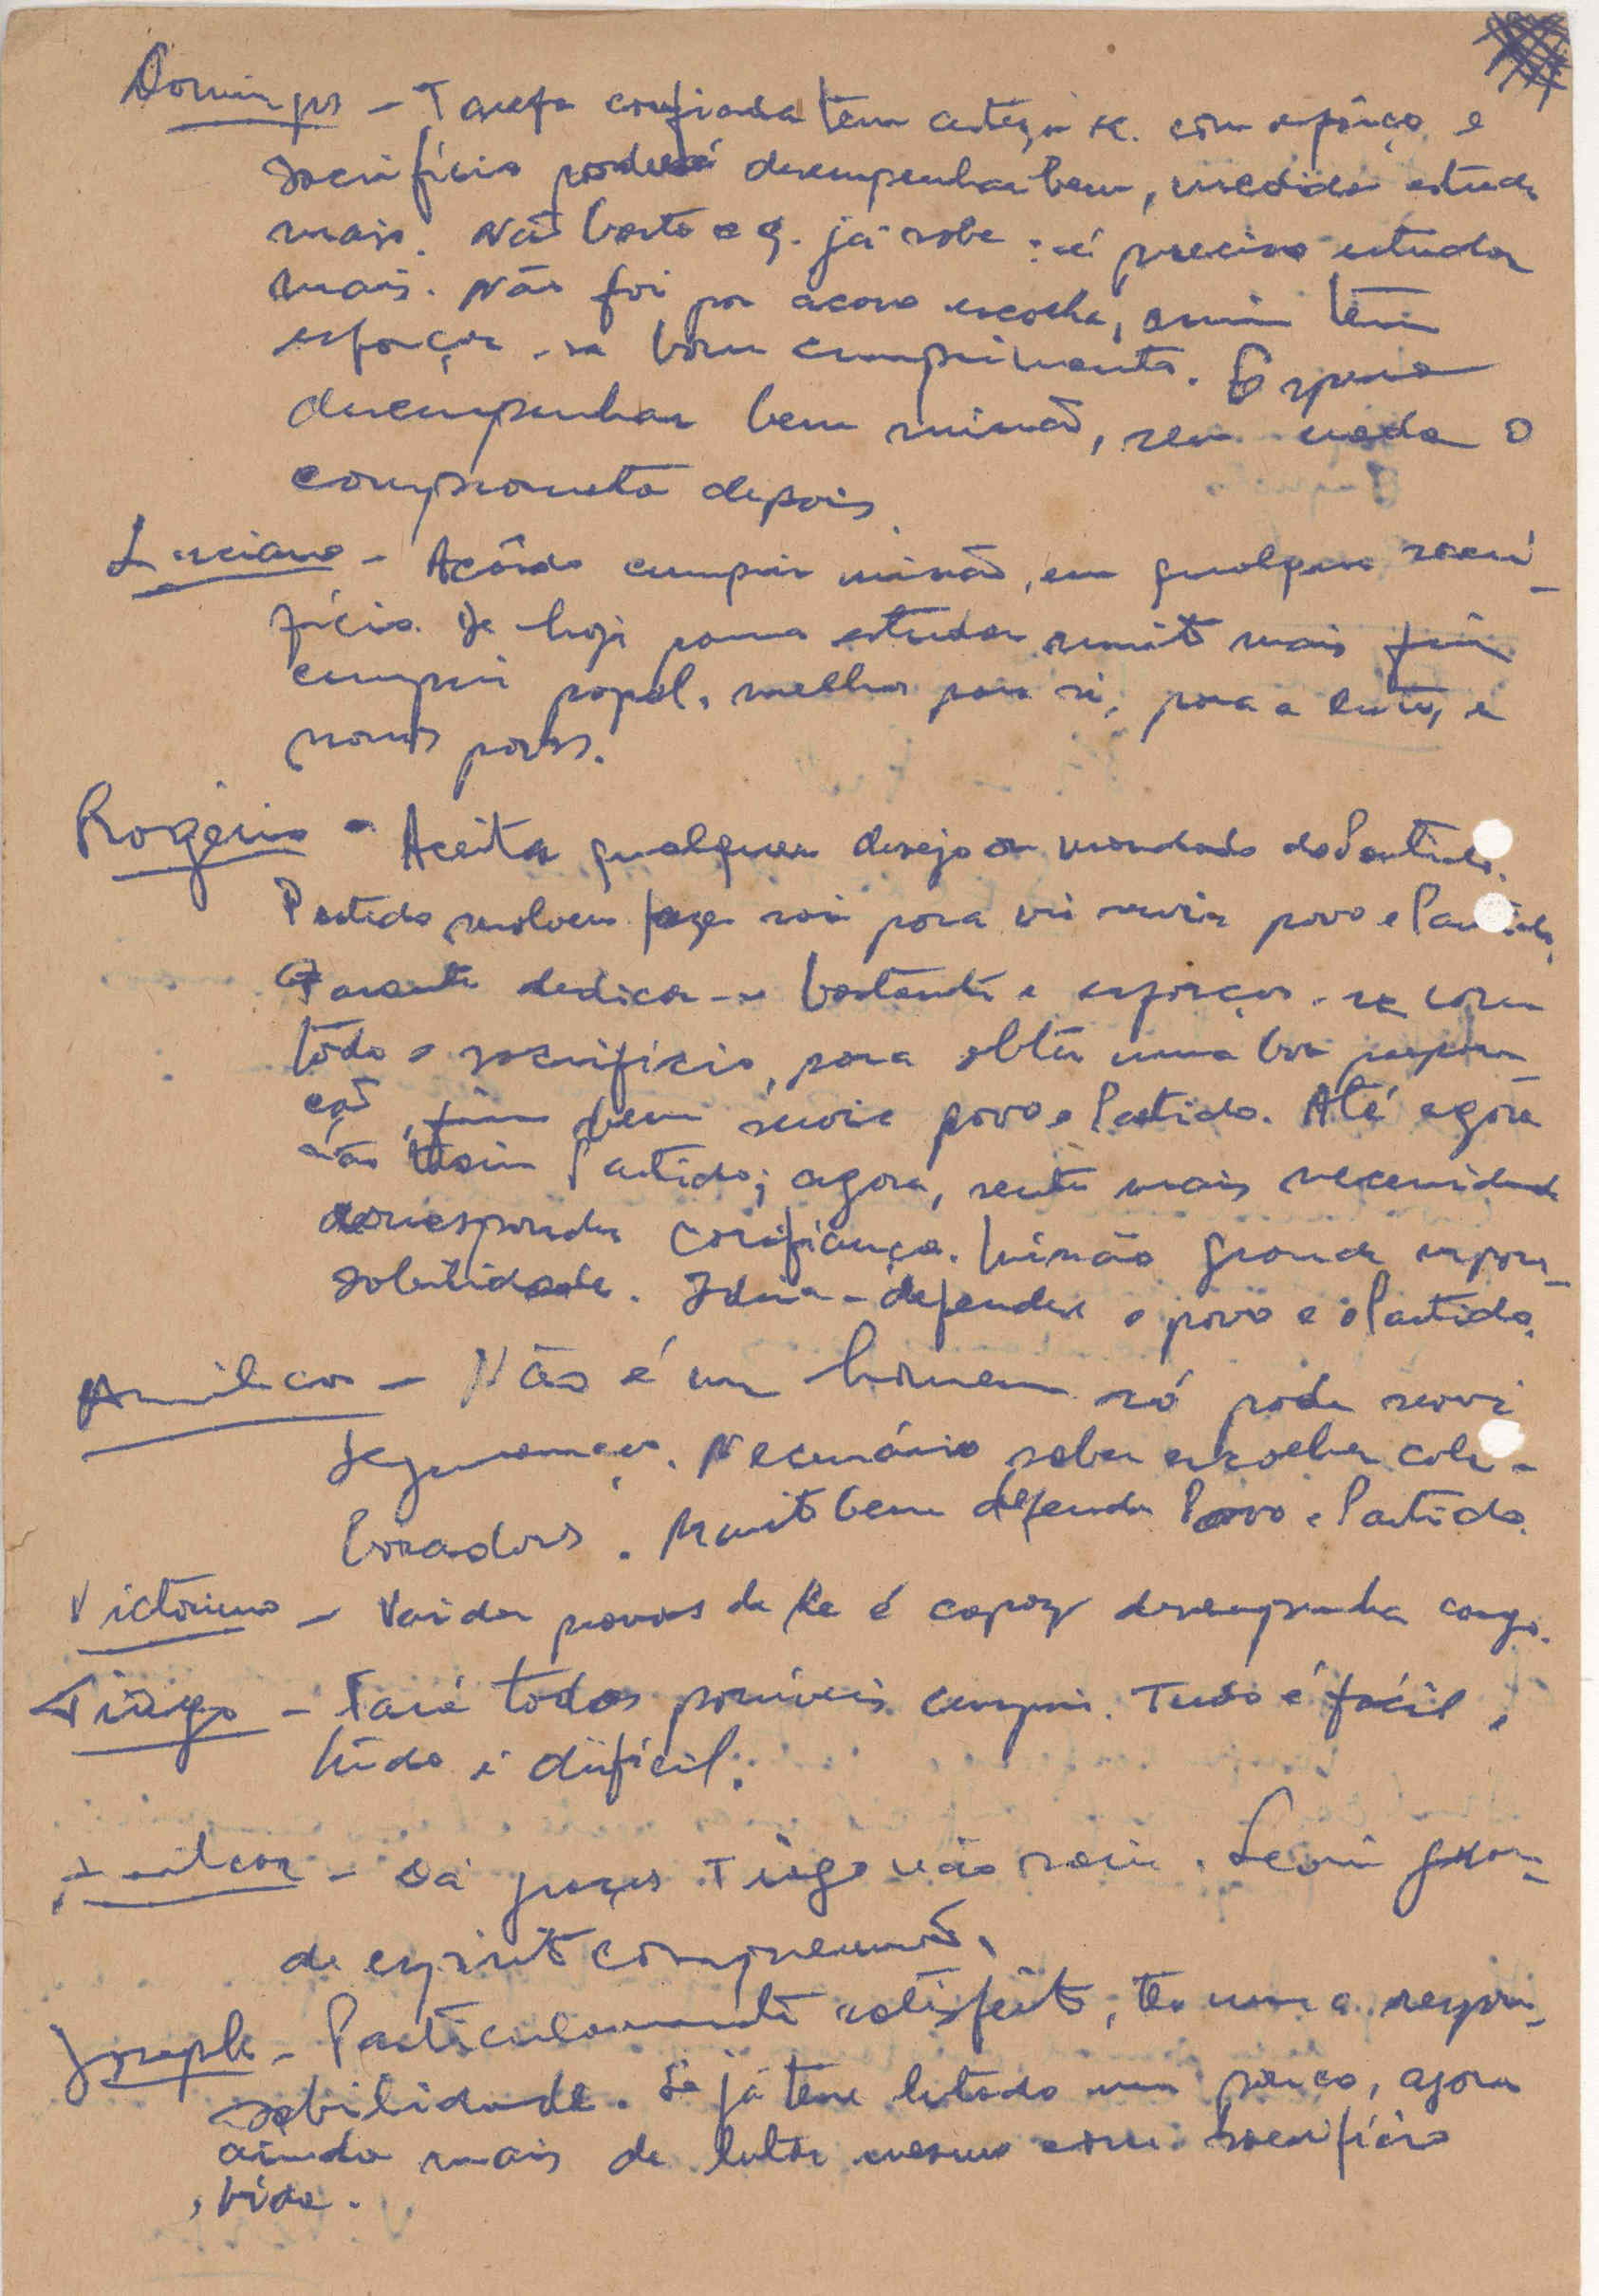 Domingos - Tarefa confiada tem certeza k. com esforço e
sacrifício poderá desempenhar bem, medida estuda
mais. Não basta o q. já sabe: é preciso estudar
mais. Não foi por acaso escolha, assim tem
esforçar-se bom cumprimento. Espera
desempenhar bem missão, sem nada o
comprometa depois.
Luciano - Acôrdo cumprir missão, em qualquer sacri-
fício. De hoje para estudar muito mais fim
cumprir papel, melhor para si, para a luta, e
nosso povo.
Rogério - Aceita qualquer desejo ou mandado do Partido.
Partido resolveu fazer sair para vir servir povo e Partido,
Garante dedicar-se bastante e esforçar-se com
todo o sacrifício, para obter uma boa prepara-
ção, fim bem servir povo e Partido. Até agora
não Partido; agora, sente mais necessidade
corresponder confiança. Missão grande respon-
sabilidade. Ideia - defender o povo e o Partido.
Amilcar - Não é um homem só pode servir
Segurança. Necessário saber escolher cola-
boradores. Muito bem defender Povo e Partido.
Victorino - Vai dar provas de ke é capaz desempenhar cargo.
Tiago - Fará todos possíveis cumprir. Tudo é fácil,
tudo é difícil.
Amilcar - Dá graças Tiago não saiu. Levi gran-
de espírito compreensão.
Joseph - Particularmente satisfeito, ter uma respon-
sabilidade. Se já tem lutado um pouco, agora
ainda mais de lutar mesmo com sacrifício
vida.